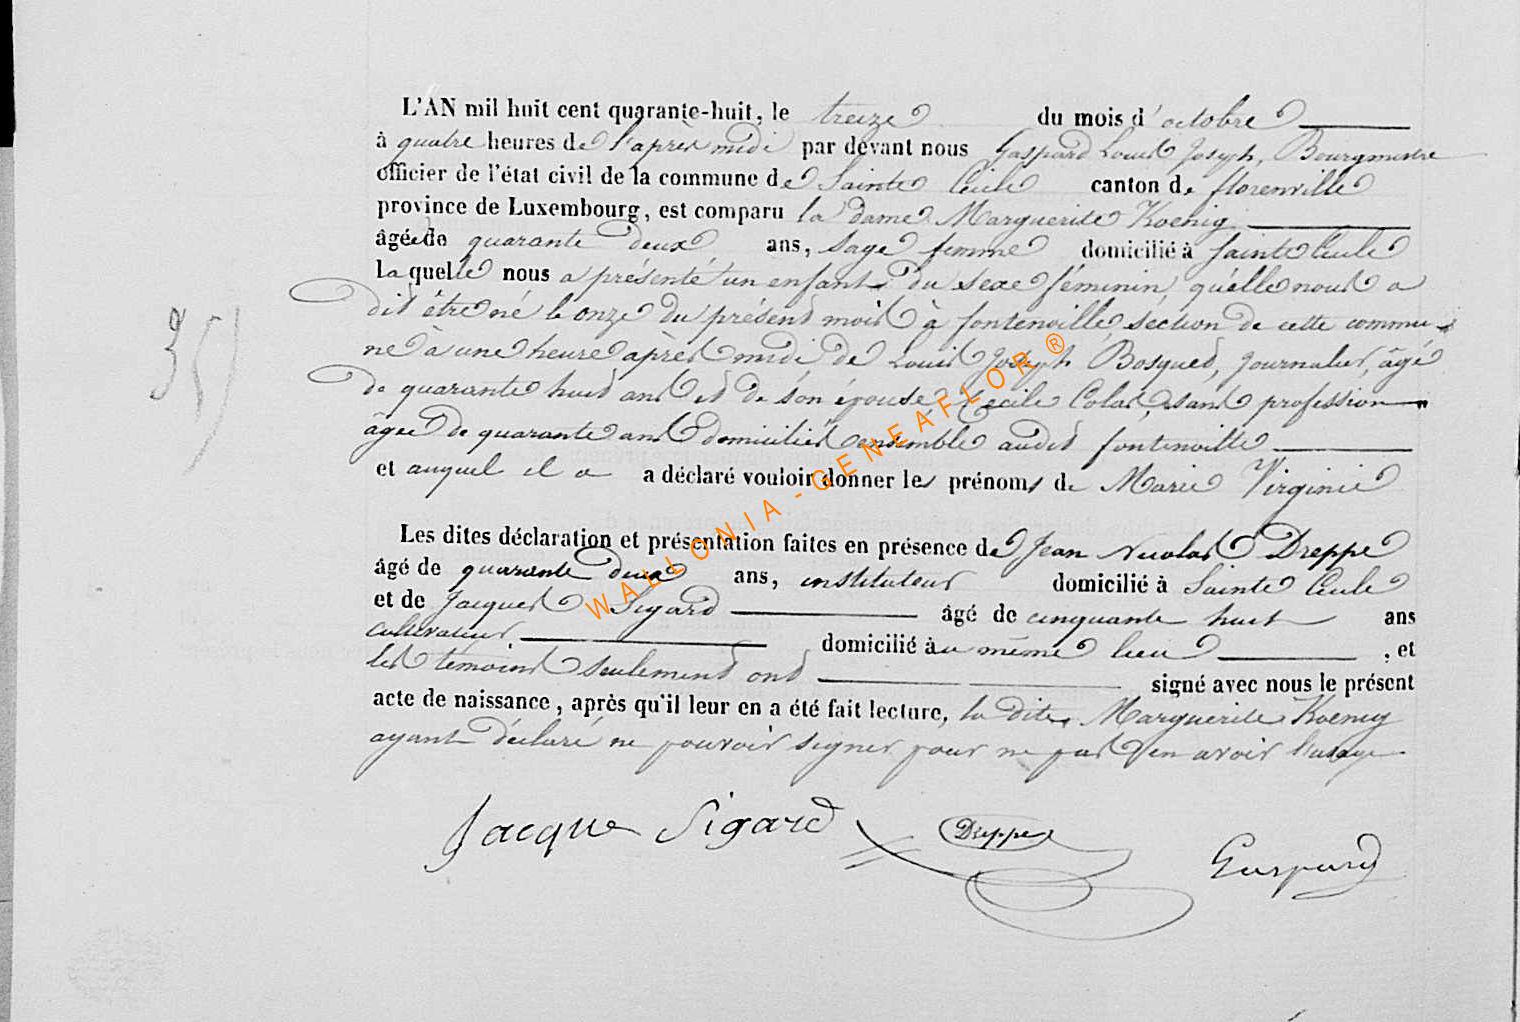 L'AN mil huit cent quarante-huit, le treize du mois d'octobre
à quatre heures de l'après midi par devant nous Gaspard Louis Joseph, Bourgmestre
officier de l'état civil de la commune de Sainte Cécile canton de florenville
province de Luxembourg, est comparu la dame Marguerite Koenig
âgée de quarante deux ans, sage femme domicilié à Sainte Cécile
laquelle nous a présenté un enfant du sexe féminin, qu'elle nous a
dit être né le onze du présent mois à fontenoille, section de cette commu-
35)
ne à une heure après midi de Louis Joseph Bosqued, Journalier, âgé
de quarante huit ans et de son épouse Cécile Colas, sans profession
âgée de quarante ans domiciliés ensemble audit fontenoille
et auquel il a a déclaré vouloir donner les prénoms de Marie Virginie
Les dites déclaration et présentation faites en présence de Jean Nicolas Dreppe
âgé de quarante deux ans, instituteur domicilié à Sainte Cécile
et de Jacques Sigard âgé de cinquante huit ans
cultivateur domicilié au même lieu , et
les témoins seulement ont signé avec nous le présent
acte de naissance, après qu'il leur en a été fait lecture, la dite Marguerite Koenig
ayant déclaré ne pouvoir signer pour ne pas en avoir l'usage
Jacque Sigard Dreppe Gaspard
WALLONIA-GENEAFLOR ®